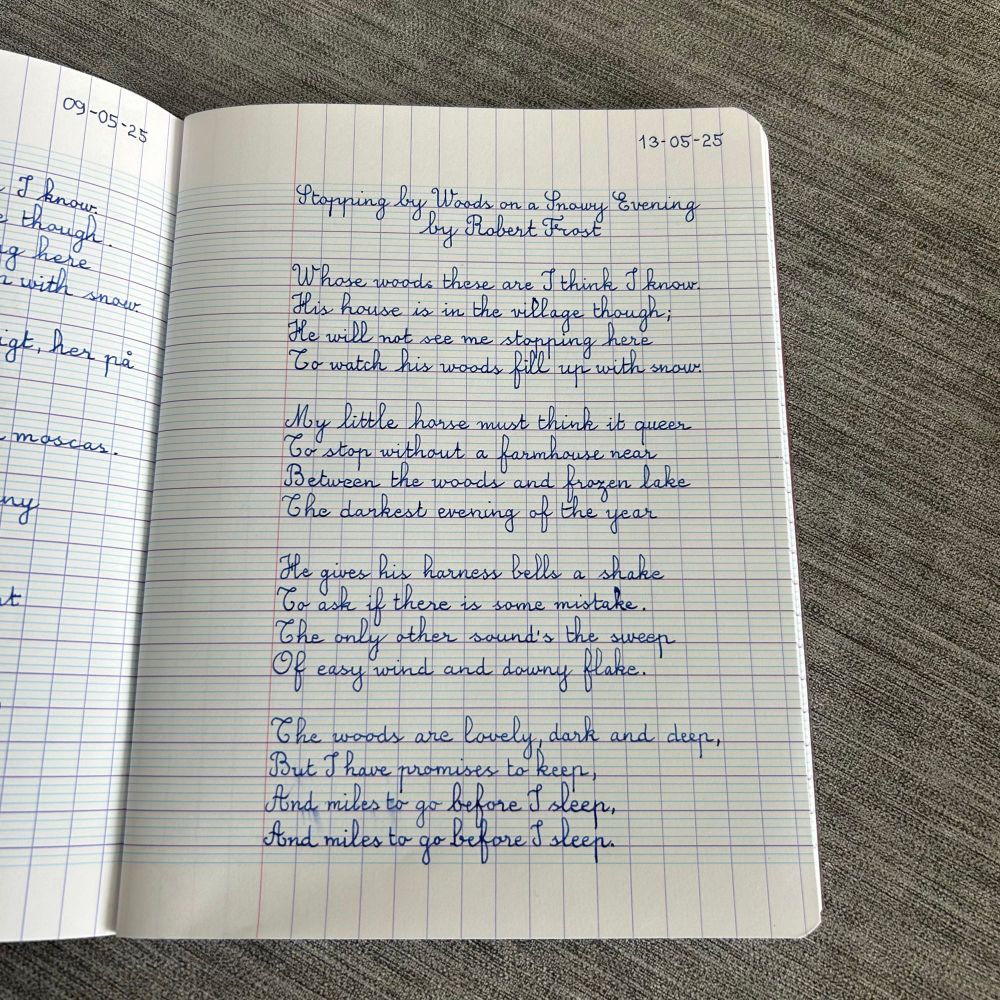 09-05-25
I know.
though.
here
with snow
her på
moscas.
13-05-25
Stopping by Woods on a Snowy Evening
by Robert Frost
Whose woods these are I think I know.
His house is in the village though;
He will not see me stopping here
To watch his woods fill up with snow.
My little horse must think it queer
To stop without a farmhouse near
Between the woods and frozen lake
The darkest evening of the year
He gives his harness bells a shake
To ask if there is some mistake.
The only other sound's the sweep
Of easy wind and downy flake.
The woods are lovely, dark and deep,
But I have promises to keep,
And miles to go before I sleep,
And miles to go before I sleep.